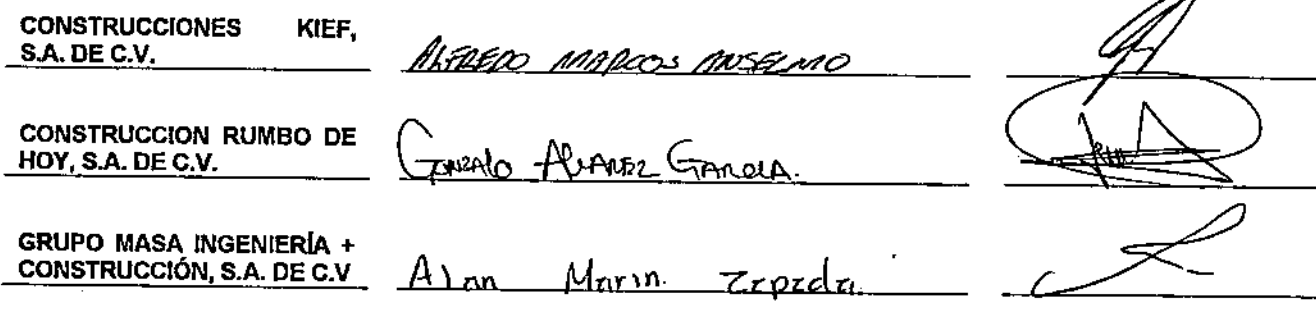 CONSTRUCCIONES KIEF,
S.A. DE C.V. ALFREDO MARCOS ANSELMO
CONSTRUCCION RUMBO DE
HOY, S.A. DE C.V. GONZALO ALVAREZ GARCIA.
GRUPO MASA INGENIERÍA +
CONSTRUCCIÓN, S.A. DE C.V Alan Marin. Zepeda.